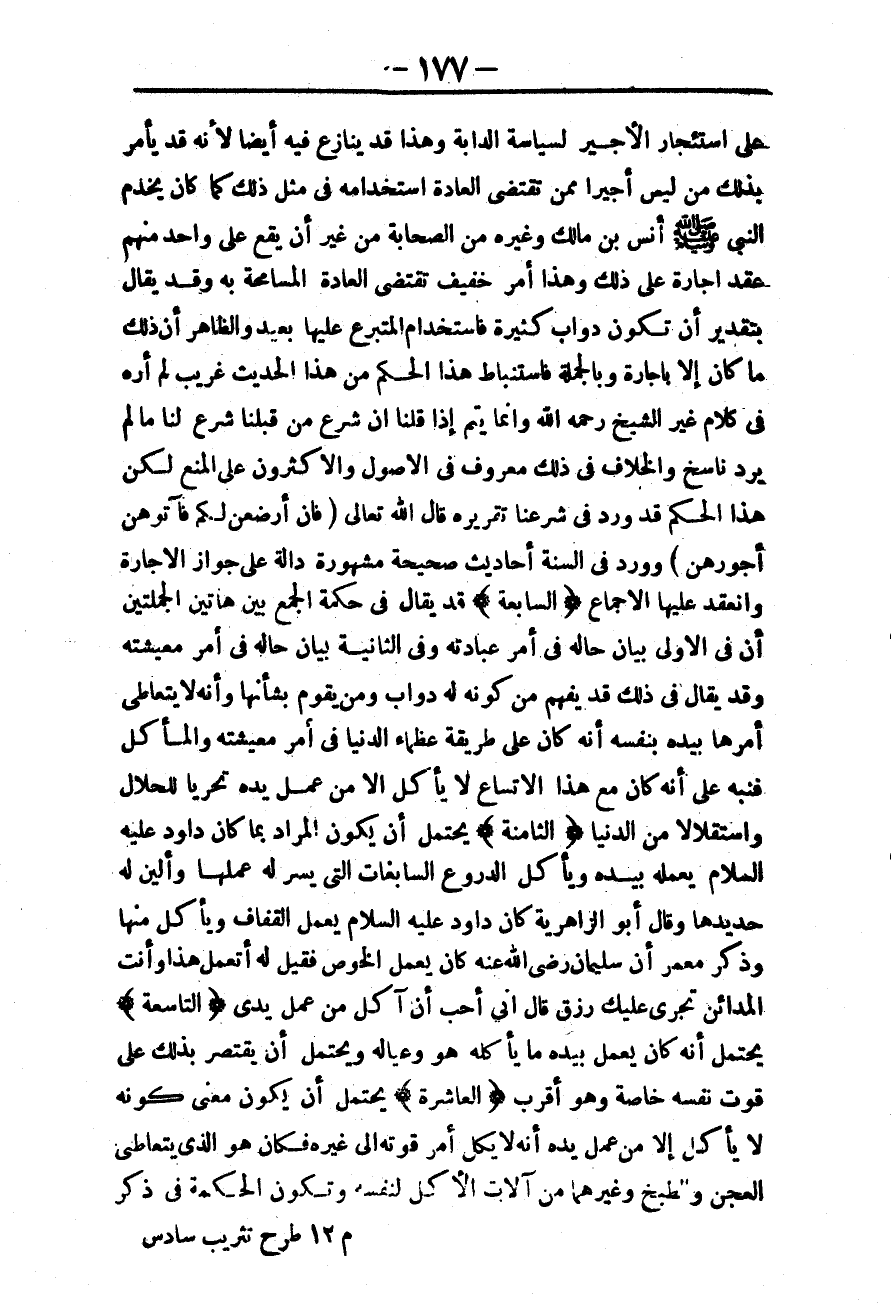 – ١٧٧ –
على استئجار الأجير لسياسة الدابة وهذا قد ينازع فيه أيضا لأنه قد يأمر
بذلك من ليس أجيرا ممن تقتضى العادة استخدامه فى مثل ذلك كما كان يخدم
النبي ﷺ أنس بن مالك وغيره من الصحابة من غير أن يقع على واحد منهم
عقد اجارة على ذلك وهذا أمر خفيف تقتضى العادة المسامحة به وقد يقال
بتقدير أن تكون دواب كثيرة فاستخدام المتبرع عليها بعيد والظاهر أن ذلك
ما كان إلا باجارة وبالجملة فاستنباط هذا الحكم من هذا الحديث غريب لم أره
فى كلام غير الشيخ رحمه الله وانما يتم إذا قلنا ان شرع من قبلنا شرع لنا مالم
يرد ناسخ والخلاف فى ذلك معروف فى الاصول والاكثرون على المنع لكن
هذا الحكم قد ورد فى شرعنا تقريره قال الله تعالى ( فان أرضعن لكم فآتوهن
أجورهن ) وورد فى السنة أحاديث صحيحة مشهورة دالة على جواز الاجارة
وانعقد عليها الاجماع ﴿ السابعة ﴾ قد يقال فى حكمة الجمع بين هاتين الجملتين
أن فى الاولى بيان حاله فى أمر عبادته وفى الثانية بيان حاله فى أمر معيشته
وقد يقال فى ذلك قد يفهم من كونه له دواب ومن يقوم بشأنها وأنه لا يتعاطى
أمرها بيده بنفسه أنه كان على طريقة عظماء الدنيا فى أمر معيشته والمأكل
فنبه على أنه كان مع هذا الاتساع لا يأكل الا من عمل يده تحريا للحلال
واستقلالا من الدنيا ﴿ الثامنة ﴾ يحتمل أن يكون المراد بما كان داود عليه
السلام يعمله بيده ويأكل الدروع السابغات التى يسر له عملها وألين له
حديدها وقال أبو الزاهرية كان داود عليه السلام يعمل القفاف ويأكل منها
وذكر معمر أن سليمان رضى الله عنه كان يعمل الخوص فقيل له أتعمل هذا وأنت
المدائن تجرى عليك رزق قال اني أحب أن آكل من عمل يدى ﴿ التاسعة ﴾
يحتمل أنه كان يعمل بيده ما يأكله هو وعياله ويحتمل أن يقتصر بذلك على
قوت نفسه خاصة وهو أقرب ﴿ العاشرة ﴾ يحتمل أن يكون معنى كونه
لا يأكل إلا من عمل يده أنه لا يكل أمر قوته الى غيره فكان هو الذى يتعاطى
العجن والطبخ وغيرهما من آلات الأكل لنفسه وتكون الحكمة فى ذكر
م ١٢ طرح تثريب سادس